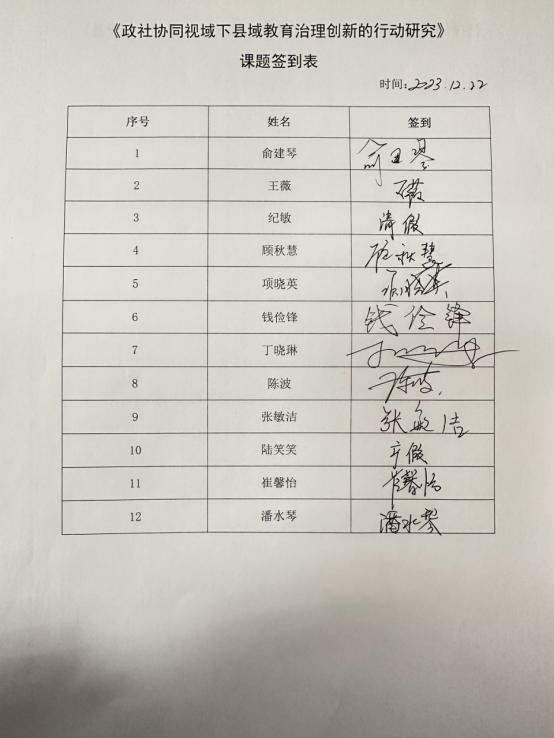 《政社协同视域下县域教育治理创新的行动研究》
课题签到表
时间:2023.12.22
序号 姓名 签到
1 俞建琴 俞建琴
2 王薇 王薇
3 纪敏 请假
4 顾秋慧 顾秋慧
5 项晓英 项晓英
6 钱俭锋 钱俭锋
7 丁晓琳
8 陈波 陈波
9 张敏洁 张敏洁
10 陆笑笑 产假
11 崔馨怡 崔馨怡
12 潘水琴 潘水琴